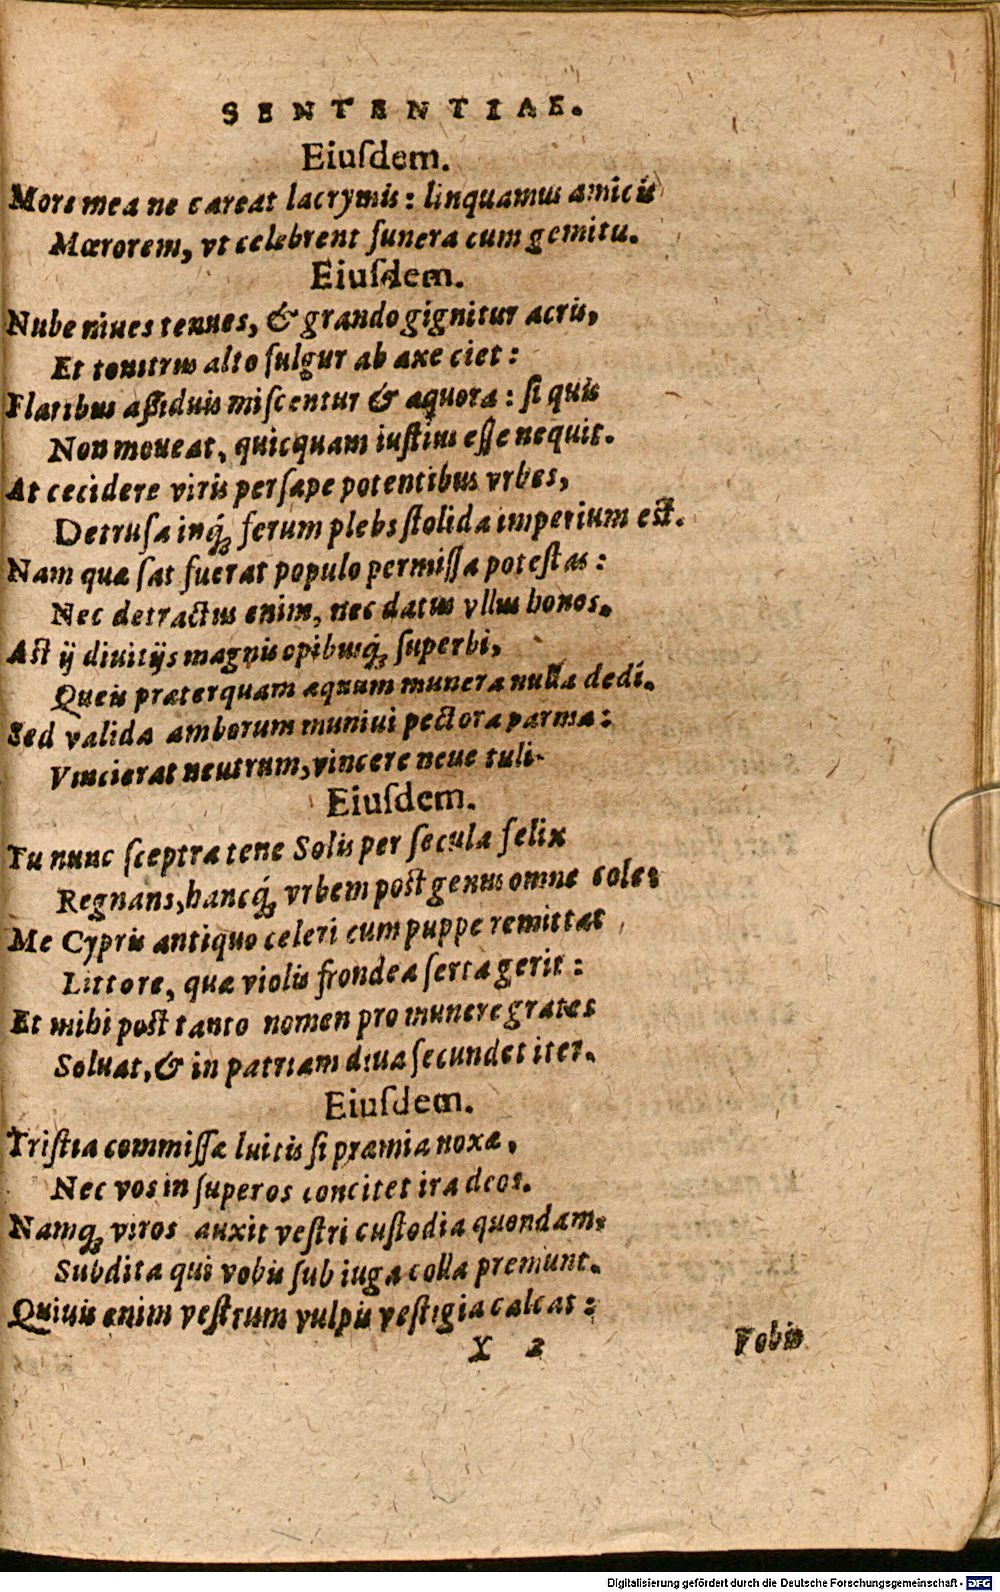 SENTENTIAE.
Eiuſdem.
Mors mea ne careat lacrymis: linquamus amicis
Mœrorem, vt celebrent funera cum gemitu.
Eiuſdem.
Nube niues tenues, & grando gignitur acris,
Et tonitrus alto fulgur ab axe ciet:
Flatibus aſſiduis miſcentur & æquora: ſi quis
Non moueat, quicquam iuſtius eſſe nequit.
At cecidere viris perſæpe potentibus vrbes,
Detruſa inq́; ferum plebs ſtolida imperium eſt.
Nam quæ ſat fuerat populo permiſſa poteſtas:
Nec detractus enim, nec datus vllus honos.
Aſt ij diuitijs magnis opibusq́; ſuperbi,
Queis præterquam æquum munera nulla dedi.
Sed valida amborum muniui pectora parma:
Vincierat neutrum, vincere neue tuli.
Eiuſdem.
Tu nunc ſceptra tene Solis per ſecula felix
Regnans, hancq́; vrbem poſt genus omne coles
Me Cypris antiquo celeri cum puppe remittat
Littore, quæ violis frondea ſerta gerit:
Et mihi poſt tanto nomen pro munere grates
Soluat, & in patriam diua ſecundet iter.
Eiuſdem.
Triſtia commiſſæ luitis ſi præmia noxæ,
Nec vos in ſuperos concitet ira deos.
Namq; viros auxit veſtri cuſtodia quondam,
Subdita qui vobis ſub iuga colla premunt.
Quiuis enim veſtrum vulpis veſtigia calcat:
X 2
Vobis
Digitalisierung gefördert durch die Deutsche Forschungsgemeinschaft - DFG